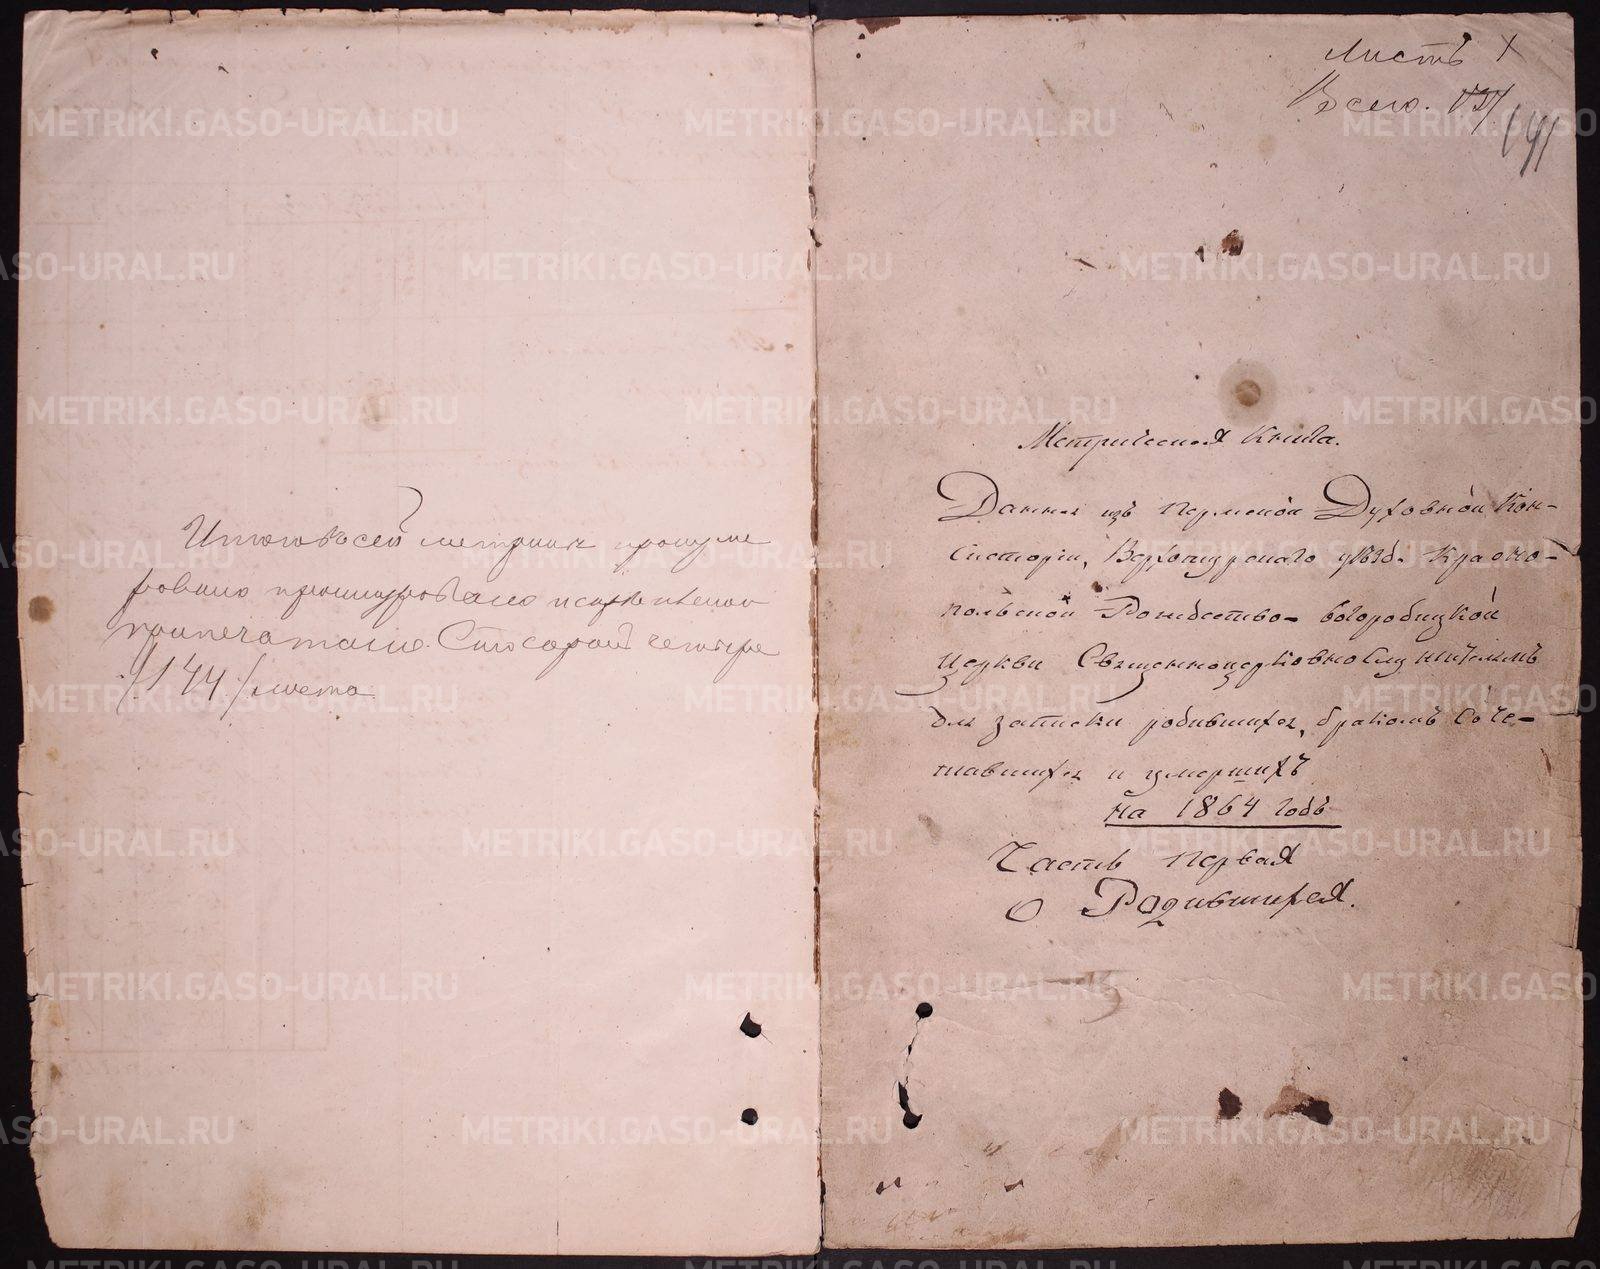 Итого въ сей метрики прошуме
ровано прошнуровано и скрепленои
припечатано. Сто сорокъ четыре
/144/ листа
Листъ 1
Всего.
141
Метрическая Книга.
Данная изъ Пермской Духовной Кон-
систоріи, Верхотурскаго уѣзда Красно-
польской Рождество-Богородицкой
церкви Священноцерковнослужителямъ
для записки родившихся, бракомъ соче-
тавшихся и умершихъ
на 1864 годъ
Часть Первая
О Родившихся.
METRIKI.GASO-URAL.RU